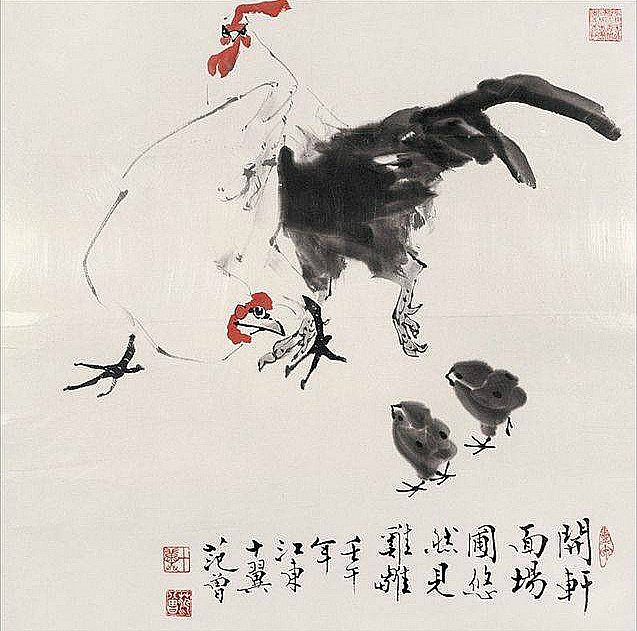 開軒
面場
圃悠
然見
雞雛
壬午
年
江東
十翼
范曾